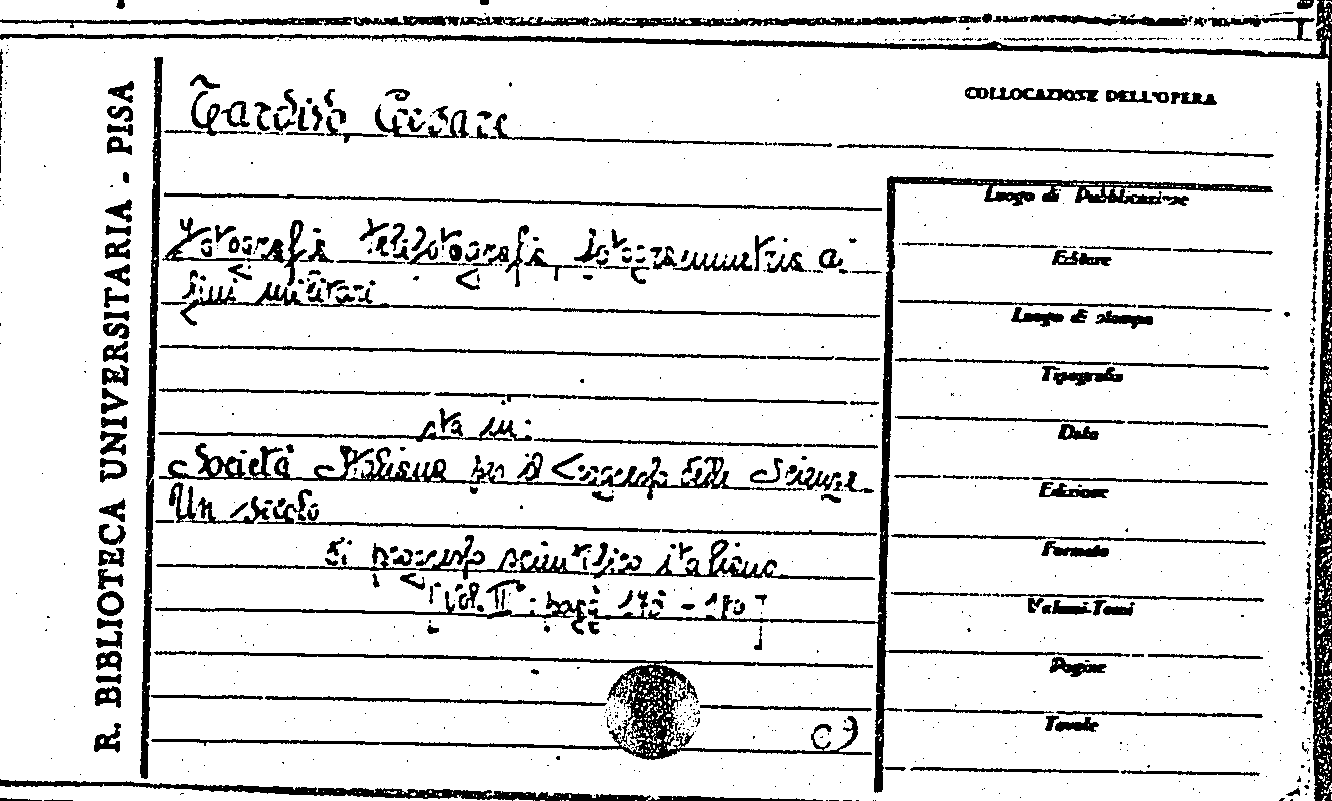 R. BIBLIOTECA UNIVERSITARIA - PISA
Tardivo, Cesare
COLLOCAZIONE DELL'OPERA
Fotografia telefotografia, fotogrammetria ai
fini militari.
sta in:
Società Italiana per il Progresso delle Scienze.
Un secolo
di progresso scientifico italiano
[Vol. II°: pagg
Luogo di Pubblicazione
Editore
Luogo di stampa
Tipografia
Data
Edizione
Formato
Volumi-Tomi
Pagine
Tavole